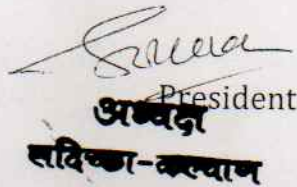 President
अध्यक्ष
सदिच्छा-कल्याण